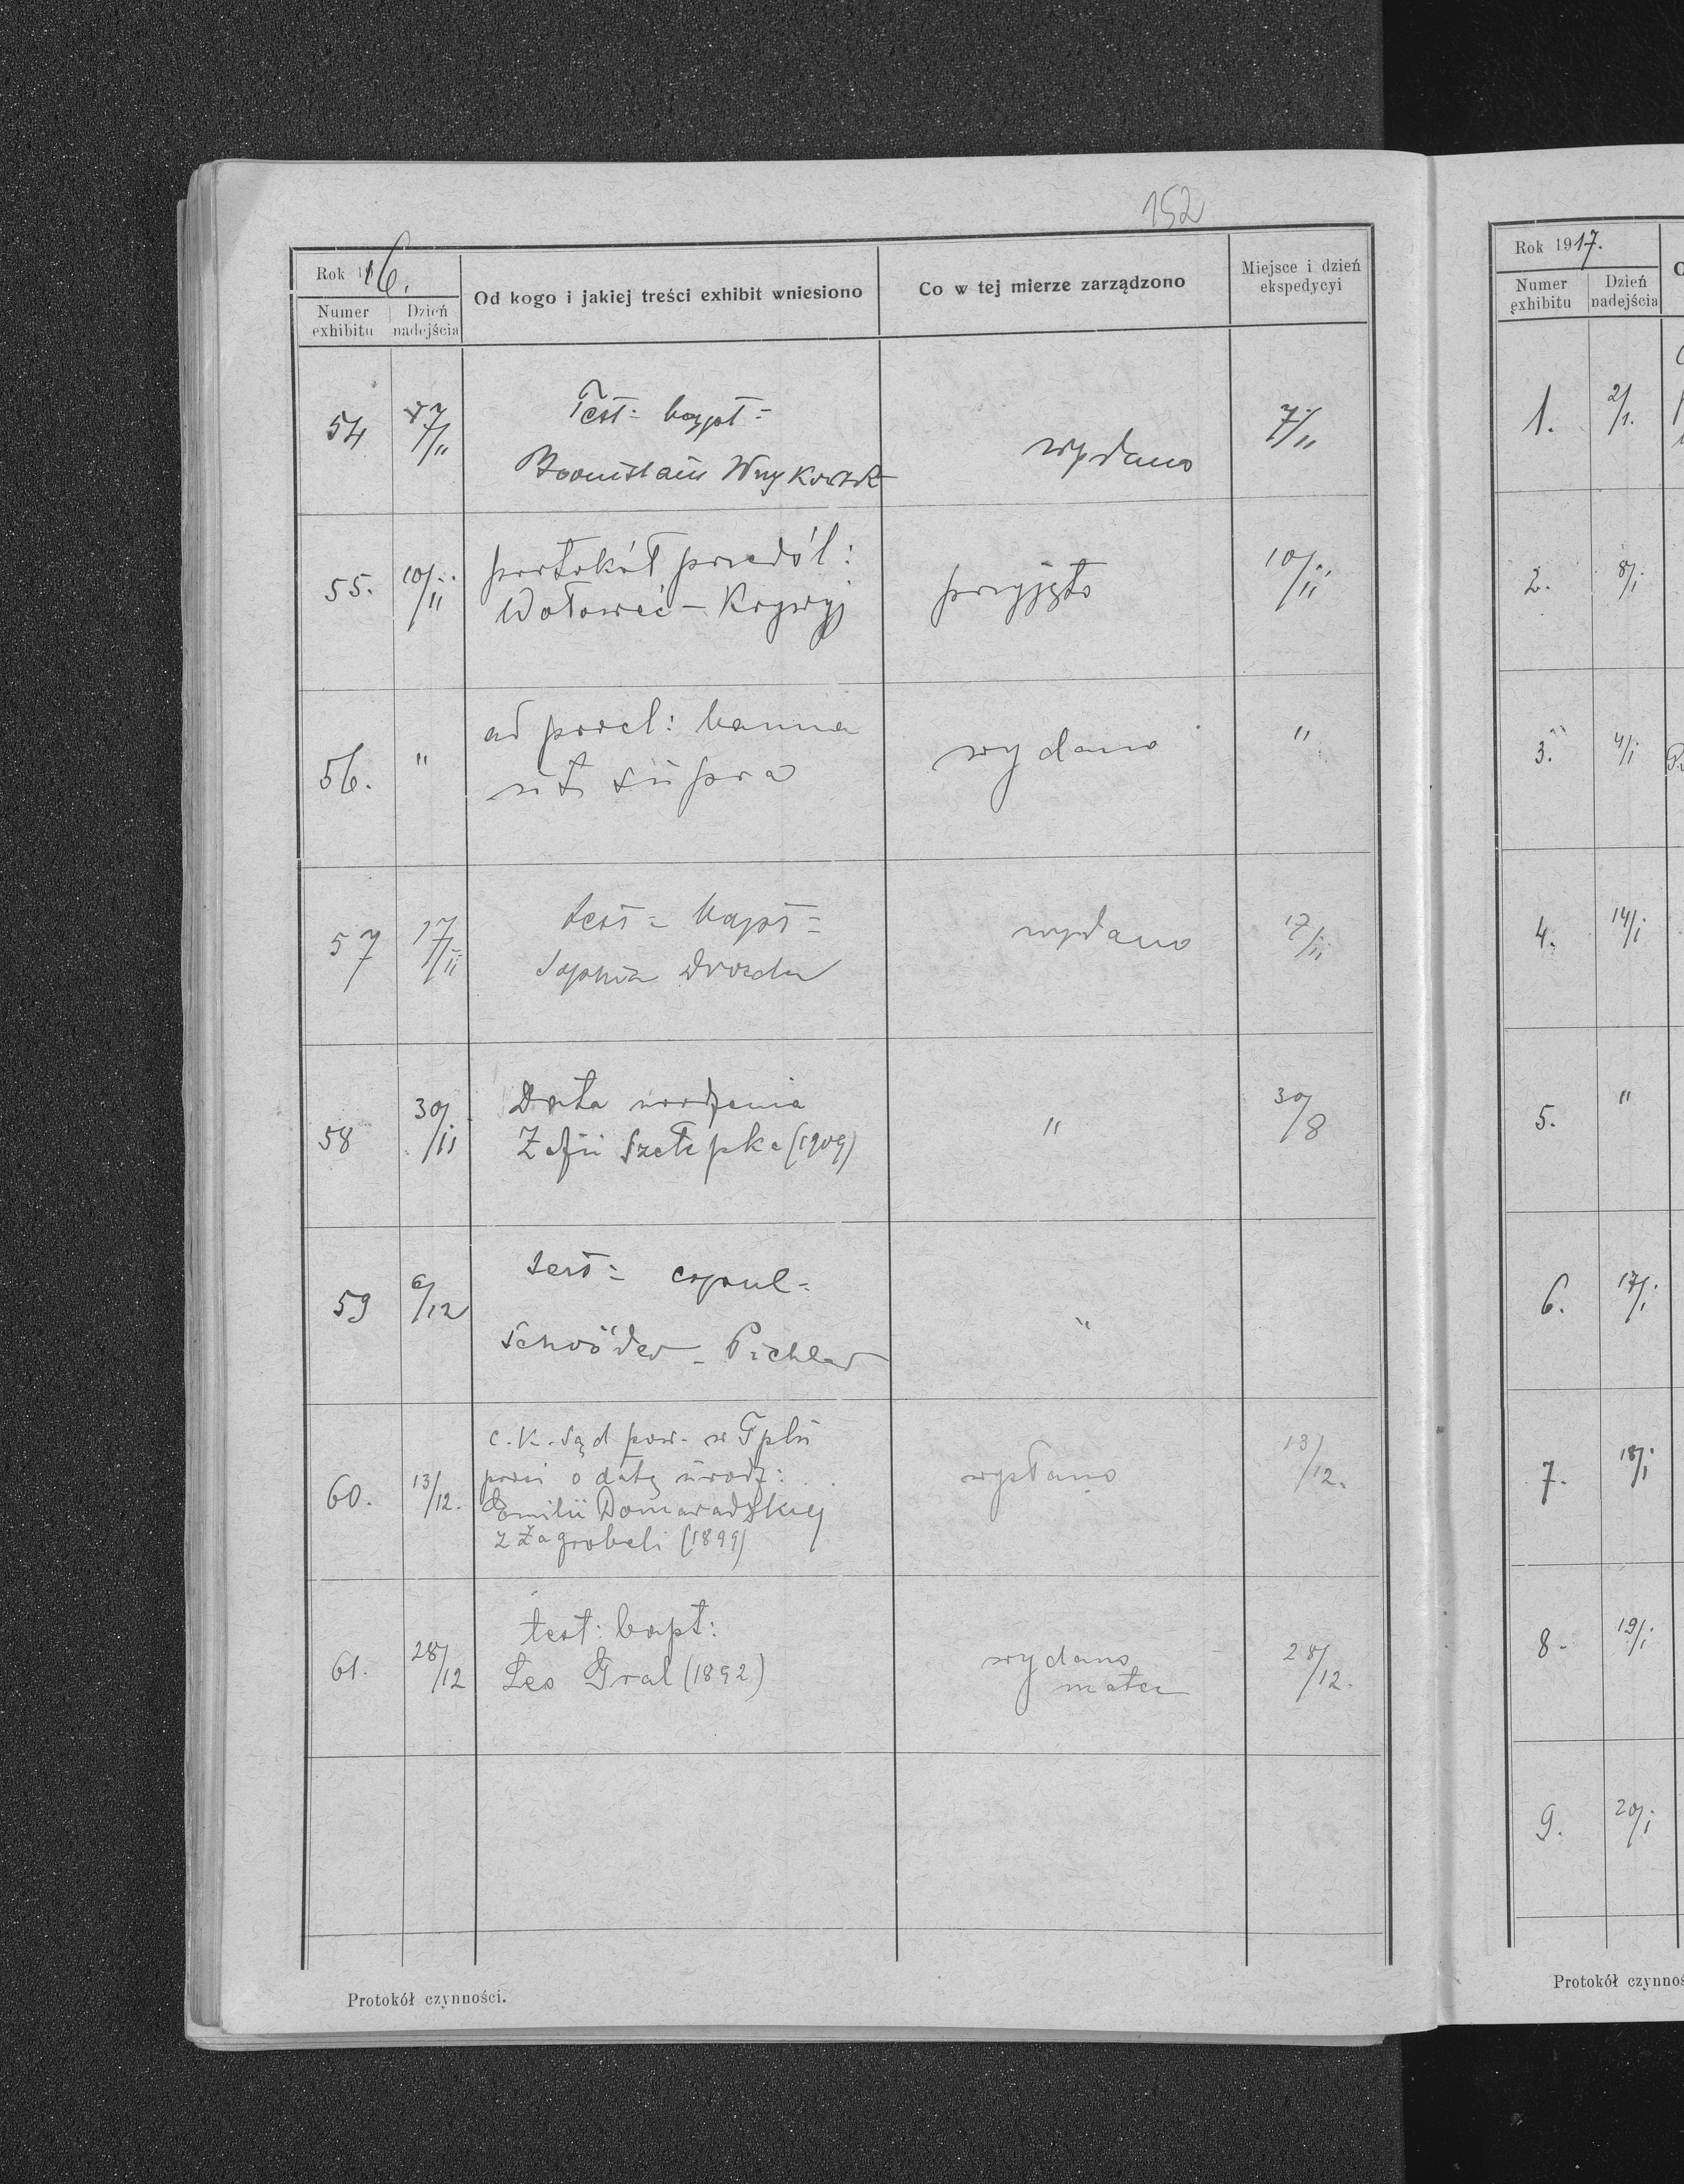 152
Rok 1916.
Numer exhibitu
Dzień nadejścia
Od kogo i jakiej treści exhibit wniesiono
Co w tej mierze zarządzono
Miejsce i dzień ekspedycyi
54 7/11 Test: bapt: wydano 7/11
Bronislaus
55. 10/11 protokół przedśl: przyjęto 10/11
Wołowiec - Krywyj
56. " ad procl: banna wydano "
ut supra
57 17/11 test: bapt: wydano 17/11
Sophia Drozda
58 30/11 Data urodzenia " 30/8
Zofii Szełepka (1909)
59 6/12 test: copul: "
Schröder - Pichler
60. 13/12. c. k. Sąd pow. w Tplu wysłano 13/12.
prosi o datę urodz:
Emilii Domaradzkiej
z Zagrobeli (1899)
61. 28/12 test: bapt: wydano 28/12.
Leo Gral (1892)
Protokół czynności.
Rok 1917.
Numer exhibitu
Dzień nadejścia
1. 2/1.
2. 8/1
3. 4/1
4. 14/1
5. "
6. 17/1
7. 18/1
8. 19/1
9. 20/1
Protokół czynnoś